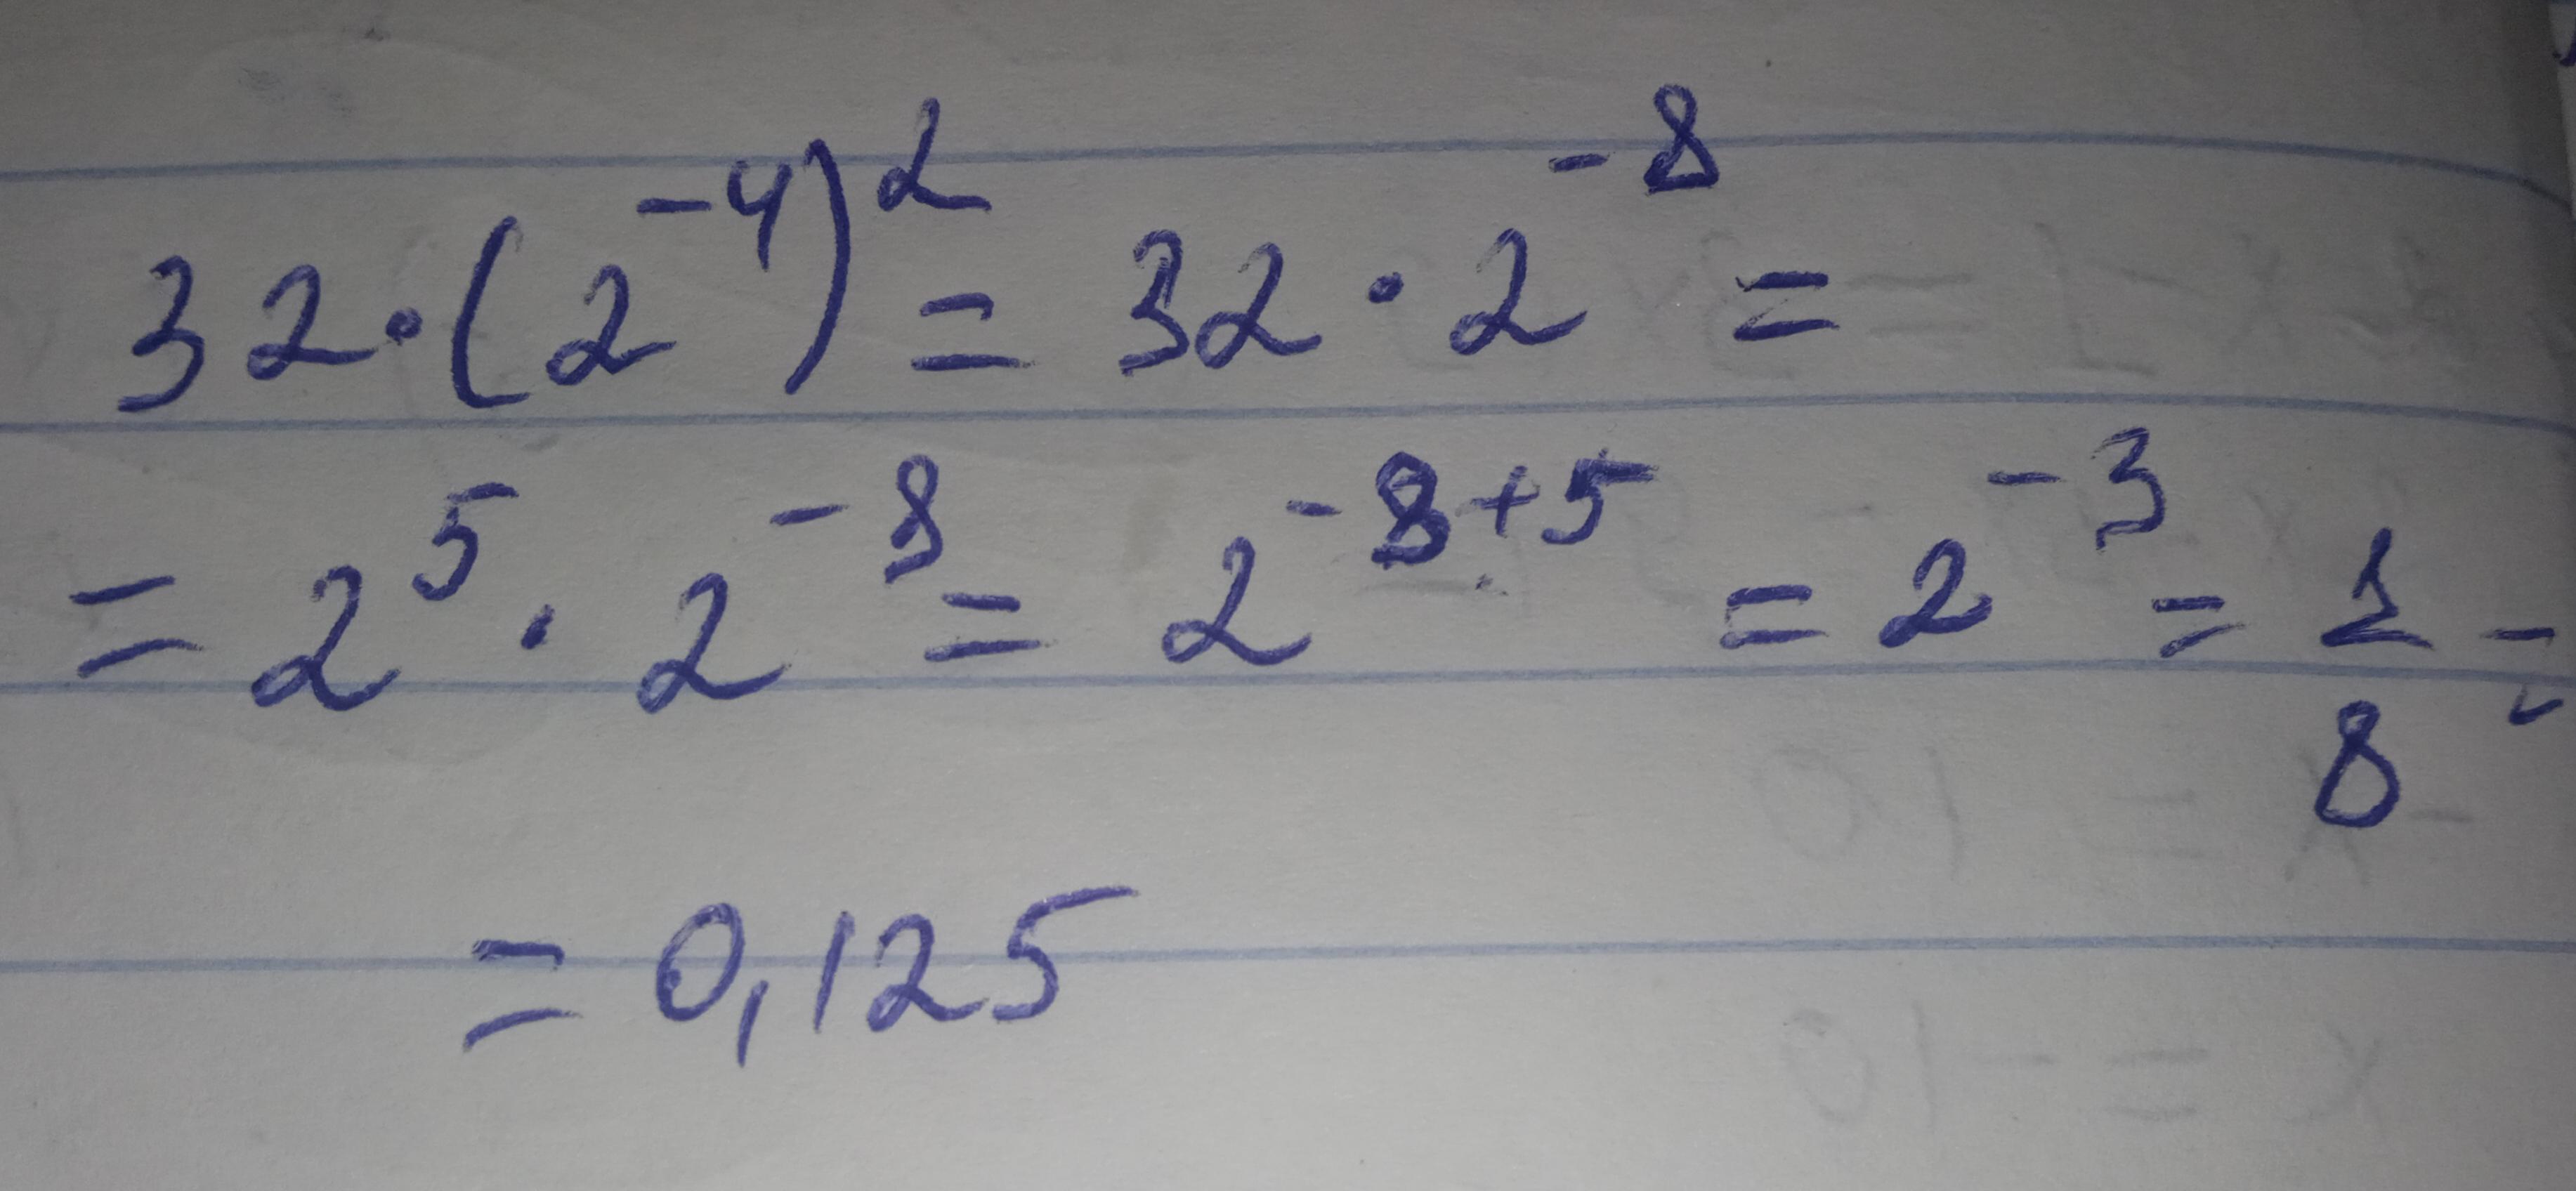 32·(2⁻⁴)² = 32·2⁻⁸ =
= 2⁵·2⁻⁸ = 2⁻⁸⁺⁵ = 2⁻³ = 1/8 =
= 0,125